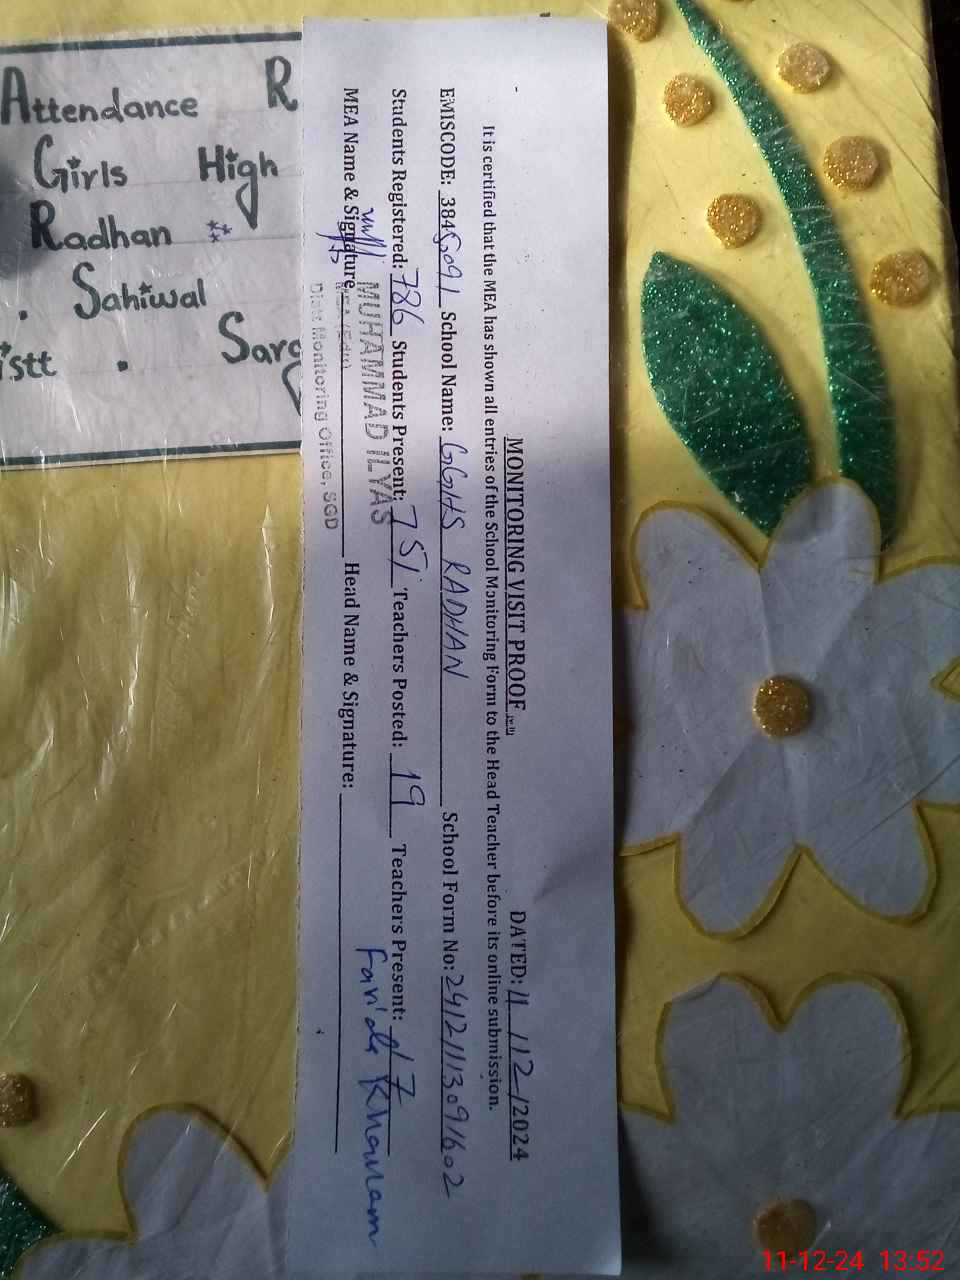 Attendance R
Girls High
Radhan
. Sahiwal
istt . Sarg
MONITORING VISIT PROOF DATED: 11/12/2024
It is certified that the MEA has shown all entries of the School Monitoring Form to the Head Teacher before its online submission.
EMISCODE: 3845091 School Name: GGHS RADHAN School Form No: 24121113091602
Students Registered: 786 Students Present: 751 Teachers Posted: 19 Teachers Present: 17
MEA Name & Signature Head Name & Signature: Farida Khanam
MUHAMMAD ILYAS
MEA (Edu)
Distt Monitoring Office, SGD
11-12-24 13:52